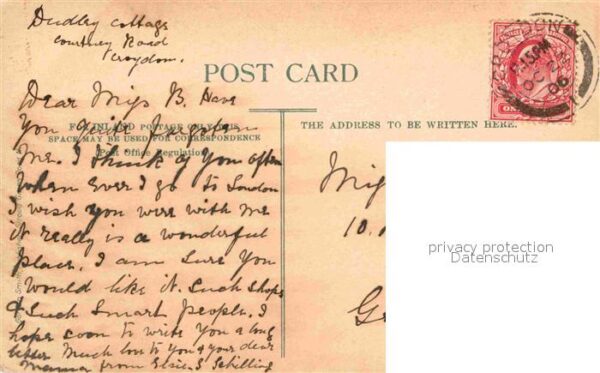 Dudley Cottage
Courtney Road
Croydon.
POST CARD
Dear Miss B. Have
You quite forgotten
FOR INLAND POSTAGE ONLY THIS
SPACE MAY BE USED FOR CORRESPONDENCE
(Post Office Regulation).
me. I think of you often
when ever I go to London
I wish you were with me
it really is a wonderful
place. I am sure you
would like it. Such shops
& Such Smart people. I
hope soon to write you a long
letter Much love to you & your dear
Mamma from Elsie. S Schilling
THE ADDRESS TO BE WRITTEN HERE.
Miss
10.
CROYDON
OC
06
privacy protection
Datenschutz